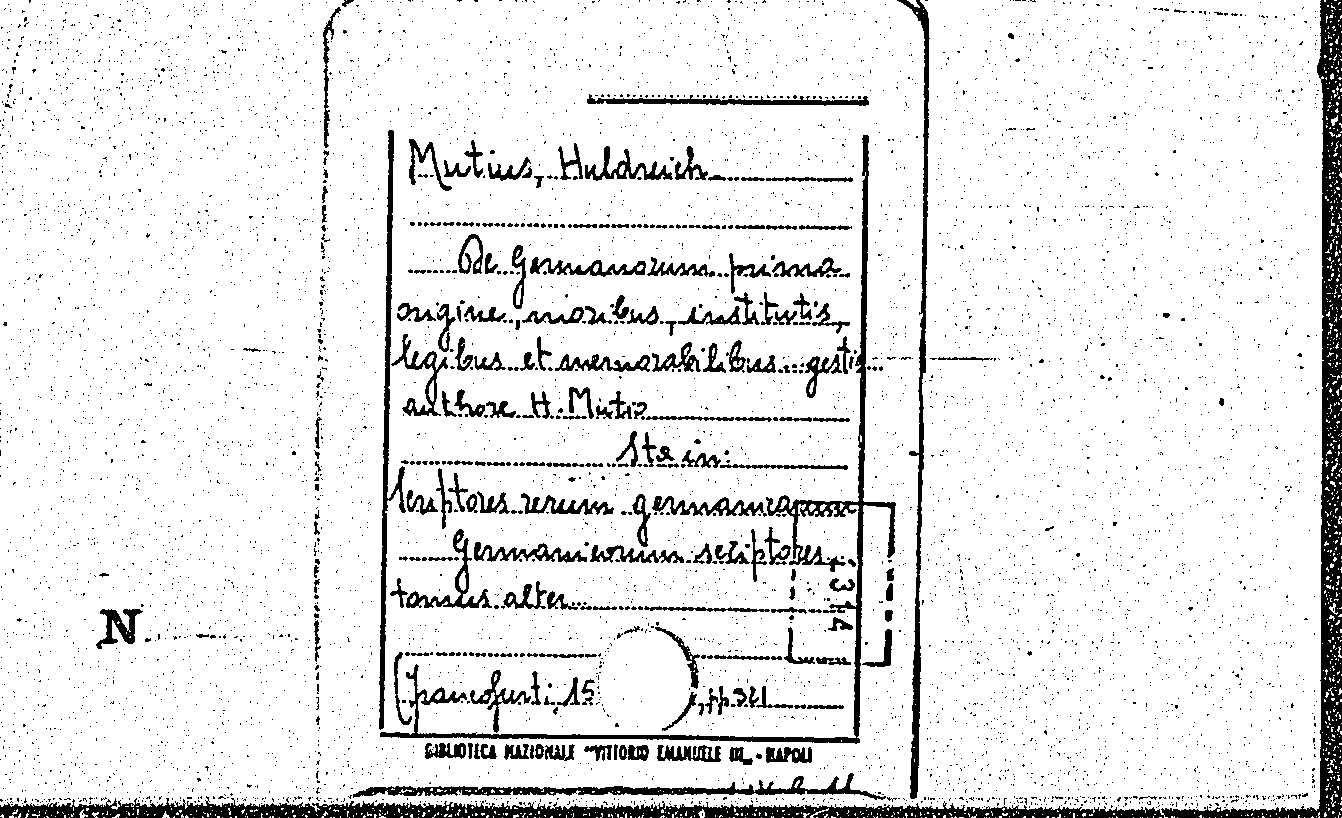 Mutius, Huldreich
De Germanorum prima
origine, moribus, institutis,
legibus et memorabilibus... gestis...
authore H. Mutio
Sta in:
Scriptores rerum germanicarum
Germanicorum scriptores...
tomus alter...
N
314
(francofurti, 15 , pp 321
BIBLIOTECA NAZIONALE "VITTORIO EMANUELE III„ - NAPOLI